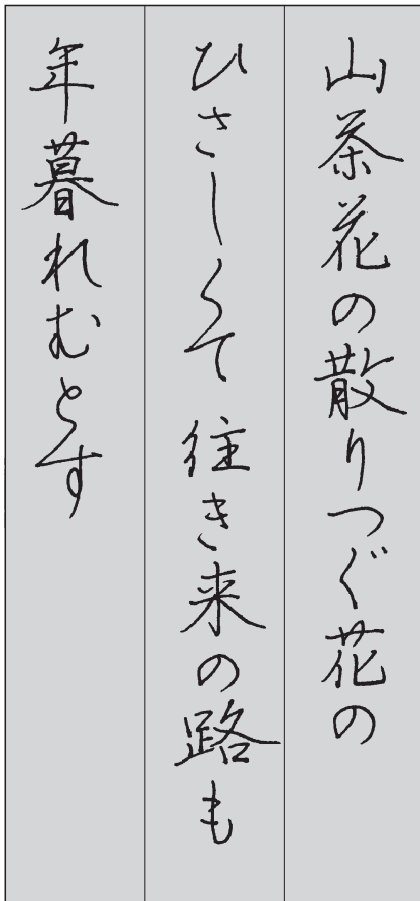 山茶花の散りつぐ花の
ひさしくて往き来の路も
年暮れむとす